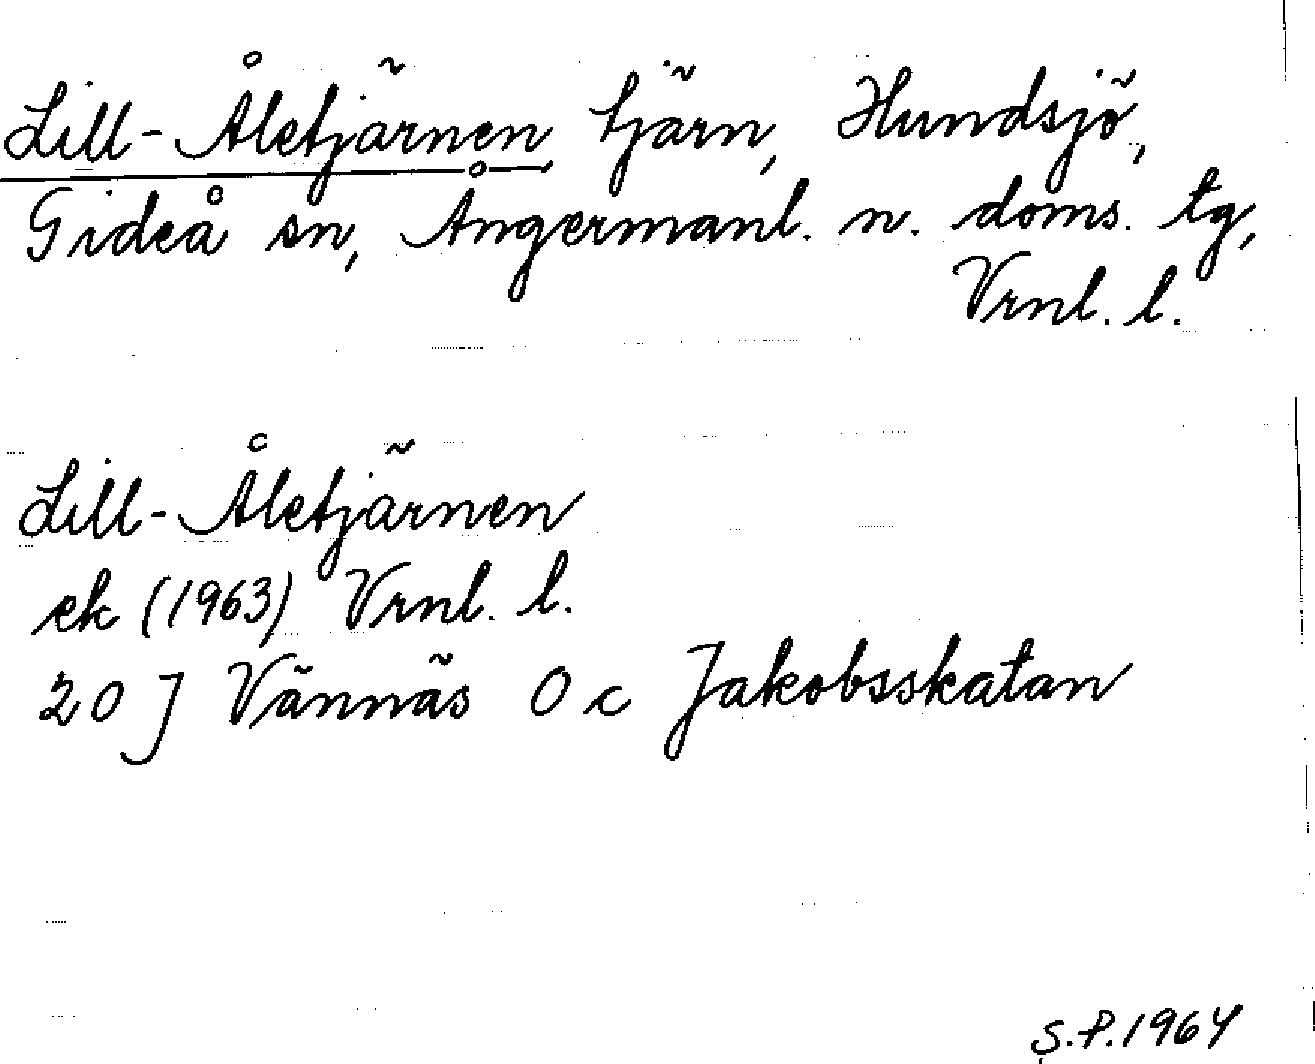 Lill-Åletjärnen tjärn, Hundsjö,
Gideå sn, Ångermanl. n. doms. tg,
Vrnl. l.
Lill-Åletjärnen
ek (1963) Vrnl. l.
20 J Vännäs 0 c Jakobsskatan
S.P. 1964